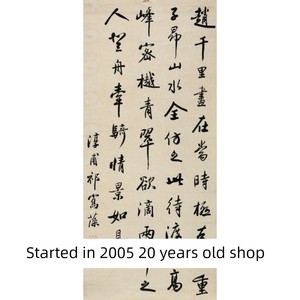 趙千里畫在當時極重
子昂山水全仿之此待渡高
峰密樾青翠欲滴兩之
人登舟牽騎情景如見
淳甫祁寯藻
Started in 2005 20 years old shop